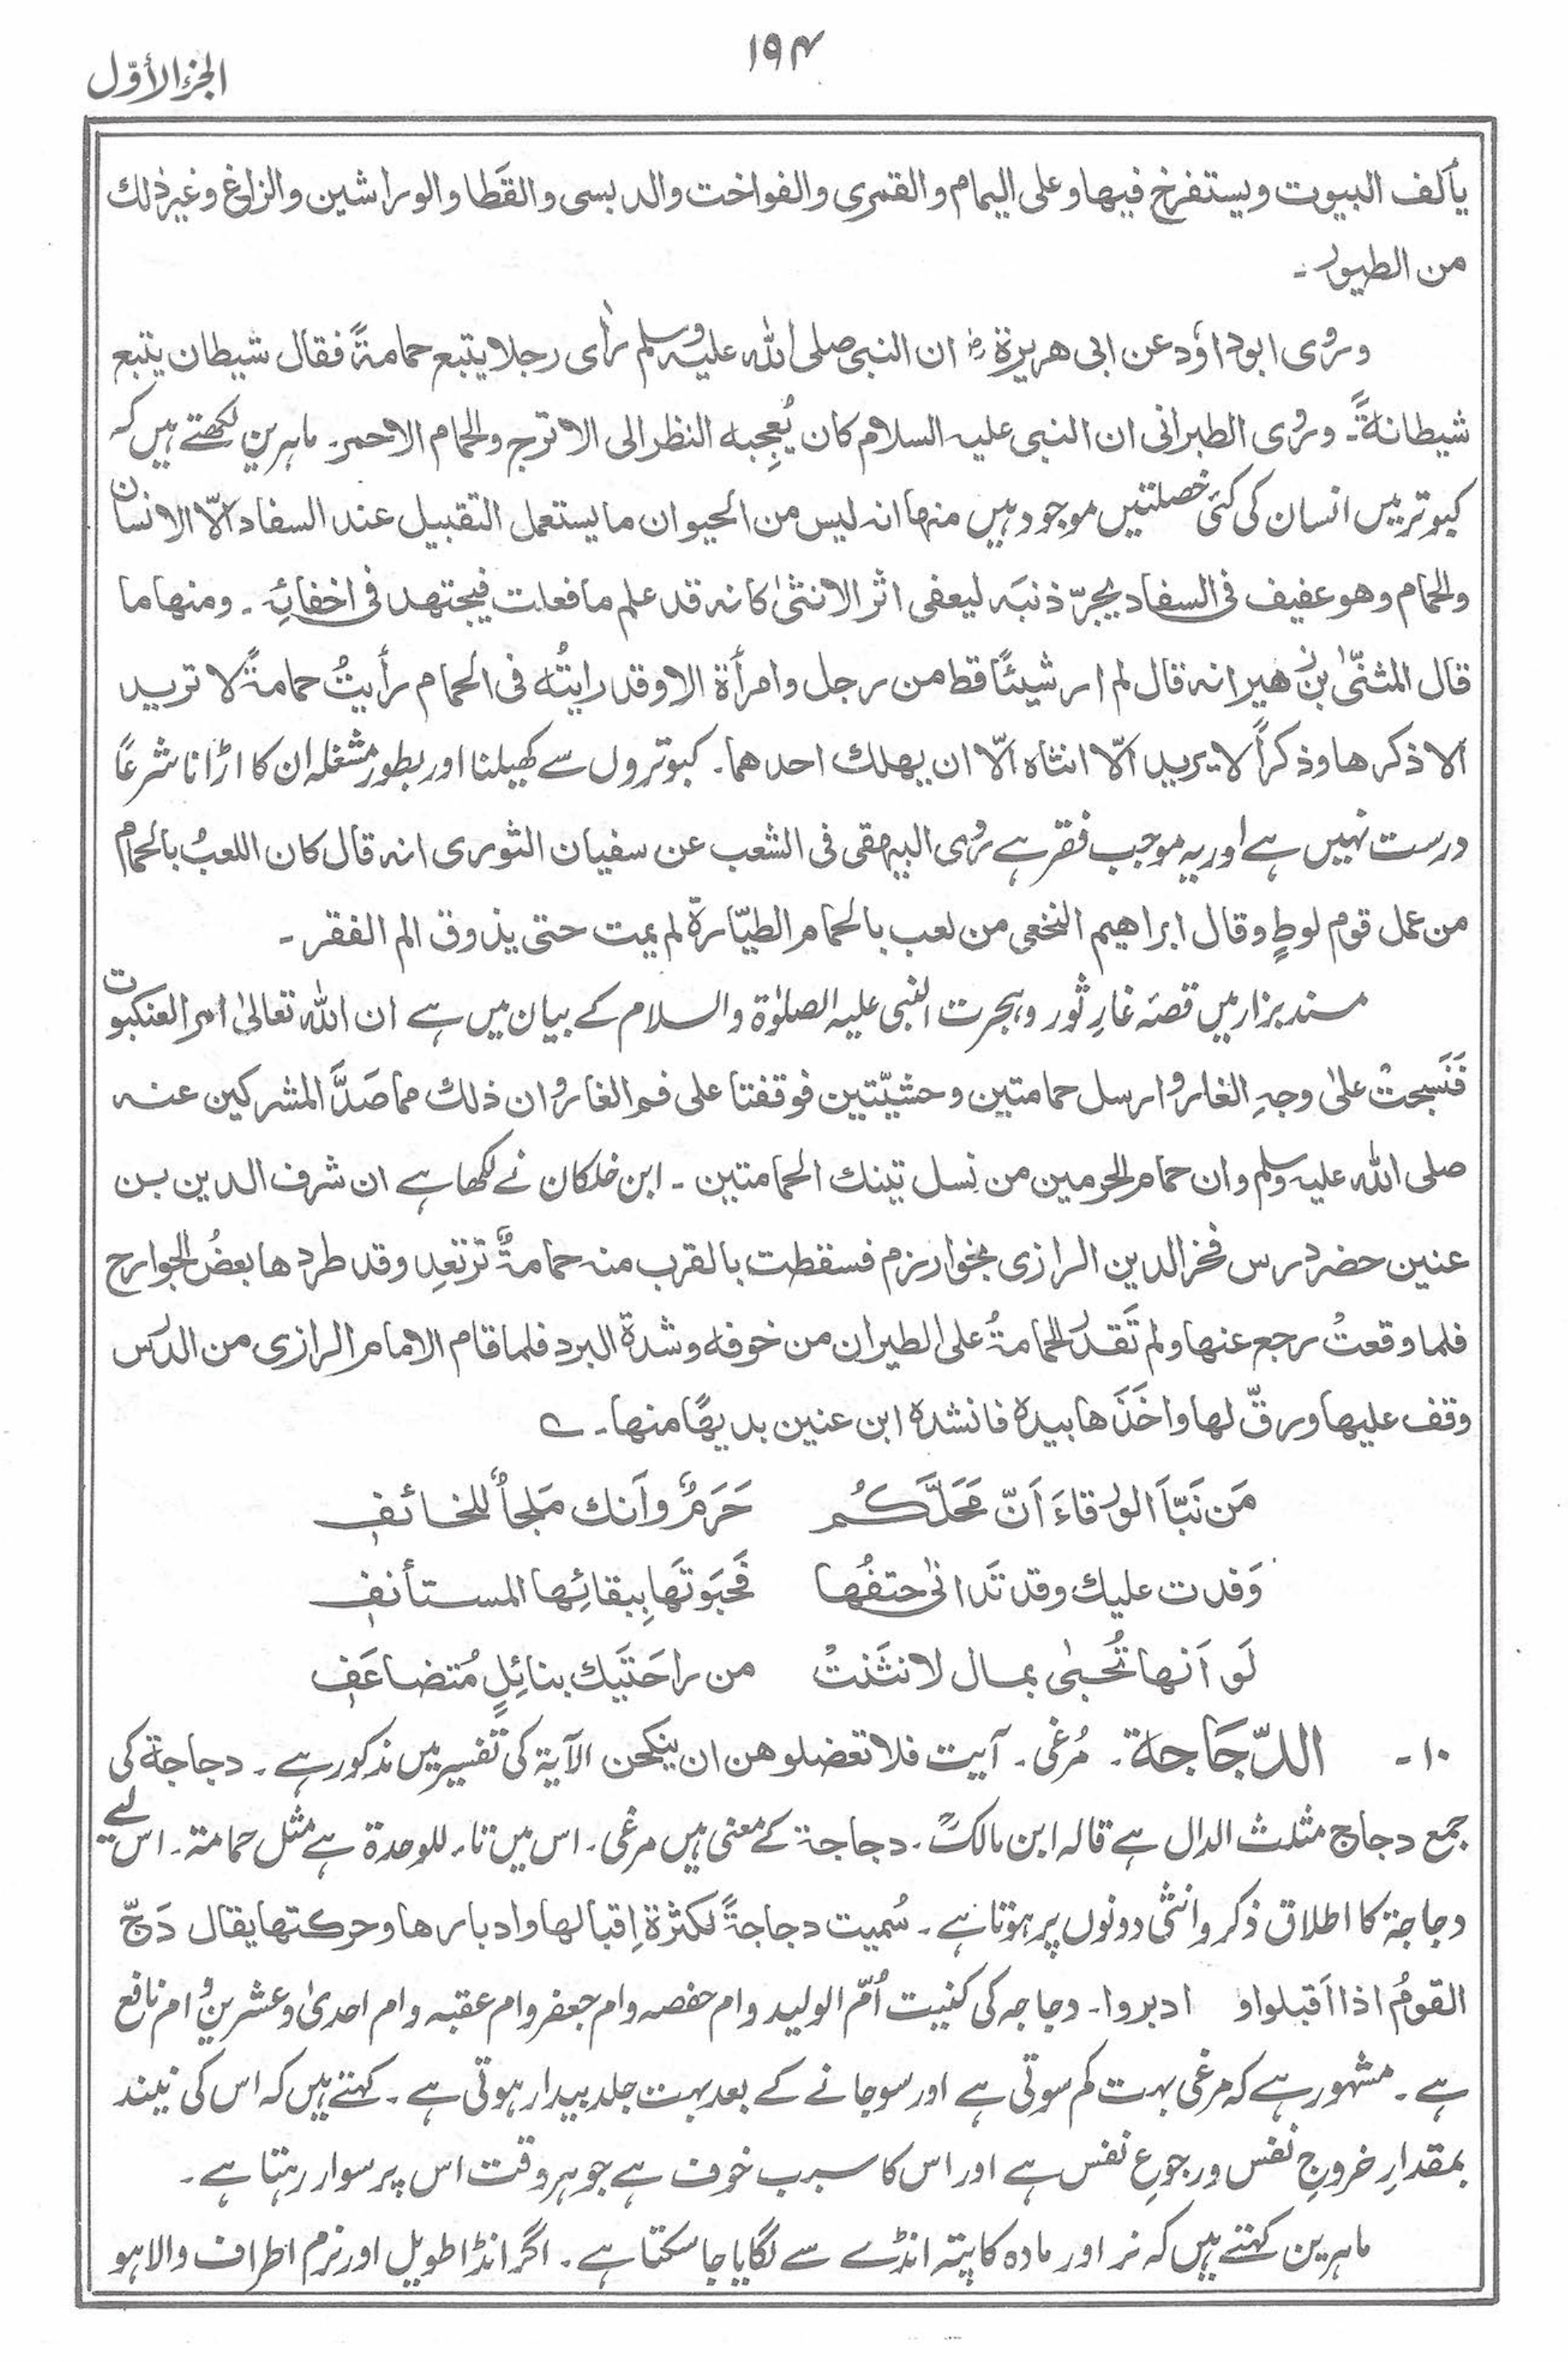 ۱۹۴
الجزء الأوّل
يألف البيوت ويستفرخ فيها وعلى اليمام والقمرى والفواخت والدبسى والقَطا والوراشين والزاغ وغير ذلك
من الطيور۔
وروٰى ابوداؤد عن ابى هريرة رض ان النبى صلى الله عليه وسلم رأى رجلا يتبع حمامةً فقال شيطان يتبع
شيطانةً۔ وروٰى الطبرانى ان النبى عليه السلام كان يُعجِبه النظر الى الاترج والحمام الاحمر۔ ماہرین لکھتے ہیں کہ
کبوتر میں انسان کی کئی خصلتیں موجود ہیں منها انه ليس من الحيوان ما يستعمل التقبيل عند السفاد الّا الانسان
والحمام وهو عفيف فى السفاد يجرّ ذنبَه ليعفى اثر الانثىٰ كانه قد علم ما فعلت فيجتهد فى اخفائِه۔ ومنها ما
قال المثنّىٰ بن زهير انه قال لم ار شيئًا قط من رجل وامرأة الا وقد رايتُه فى الحمام رأيتُ حمامةً لا تريد
الا ذكرها وذكراً لا يريد الّا انثاه الّا ان يهلك احدهما۔ کبوتروں سے کھیلنا اور بطور مشغلہ ان کا اڑانا شرعًا
درست نہیں ہے اور یہ موجب فقر ہے روٰى البيهقى فى الشعب عن سفيان الثورى انه قال كان اللعبُ بالحمام
من عمل قوم لوطٍ وقال ابراهيم النخعى من لعب بالحمام الطيّارة لم يمت حتى يذوق الم الفقر۔
مسند بزار میں قصۂ غارِ ثور وہجرت النبی علیہ الصلوٰۃ والسلام کے بیان میں ہے ان الله تعالىٰ امر العنكبوت
فَنَسجتْ علىٰ وجهِ الغار وارسل حمامتين وحشيّتين فوقفتا على فم الغار وان ذلك مما صَدَّ المشركين عنه
صلى الله عليه وسلم وان حمام الحرمين من نِسل تينك الحمامتين۔ ابن خلکان نے لکھا ہے ان شرف الدين بن
عنين حضر درس فخر الدين الرازى بخوارزم فسقطت بالقرب منه حمامةٌ ترتعد وقد طردها بعضُ الجوارح
فلما وقعتْ رجع عنها ولم تَقدر الحمامةُ على الطيران من خوفه وشدة البرد فلما قام الامام الرازى من الدرس
وقف عليها ورقّ لها واخَذَها بيده فانشده ابن عنين بديهًا منها۔ ؎
مَن نَبّأ الورقاءَ اَنّ مَحَلَّكُم حَرَمٌ وأنك مَلجأٌ للخائف
وَفدت عليك وقد تَدانىٰ حتفُها فَحَبَوتَها بِبقائِها المستأنف
لَو اَنها تُحبىٰ بمال لانثَنتْ من راحَتَيك بنائِلٍ مُتضاعَف
۱۰۔ الدّجَاجة۔ مُرغی۔ آیت فلا تعضلوهن ان ينكحن الآية کی تفسیر میں مذکور ہے۔ دجاجۃ کی
جمع دجاج مثلث الدال ہے قاله ابن مالکؒ۔ دجاجۃ کے معنی ہیں مرغی۔ اس میں تاء للوحدۃ ہے مثل حمامۃ۔ اس لیے
دجاجۃ کا اطلاق ذکر وانثی دونوں پر ہوتا ہے۔ سُميت دجاجةً لكثرة اِقبالها وادبارها وحركتها يقال دَجّ
القومُ اذا اَقبلوا و ادبروا۔ دجاجہ کی کنیت اُمّ الولید وام حفصہ وام جعفر وام عقبہ وام احدیٰ وعشرین و ام نافع
ہے۔ مشہور ہے کہ مرغی بہت کم سوتی ہے اور سو جانے کے بعد بہت جلد بیدار ہوتی ہے۔ کہتے ہیں کہ اس کی نیند
بمقدارِ خروجِ نفس ورجوعِ نفس ہے اور اس کا سبب خوف ہے جو ہر وقت اس پر سوار رہتا ہے۔
ماہرین کہتے ہیں کہ نر اور مادہ کا پتہ انڈے سے لگایا جا سکتا ہے۔ اگر انڈا طویل اور نرم اطراف والا ہو